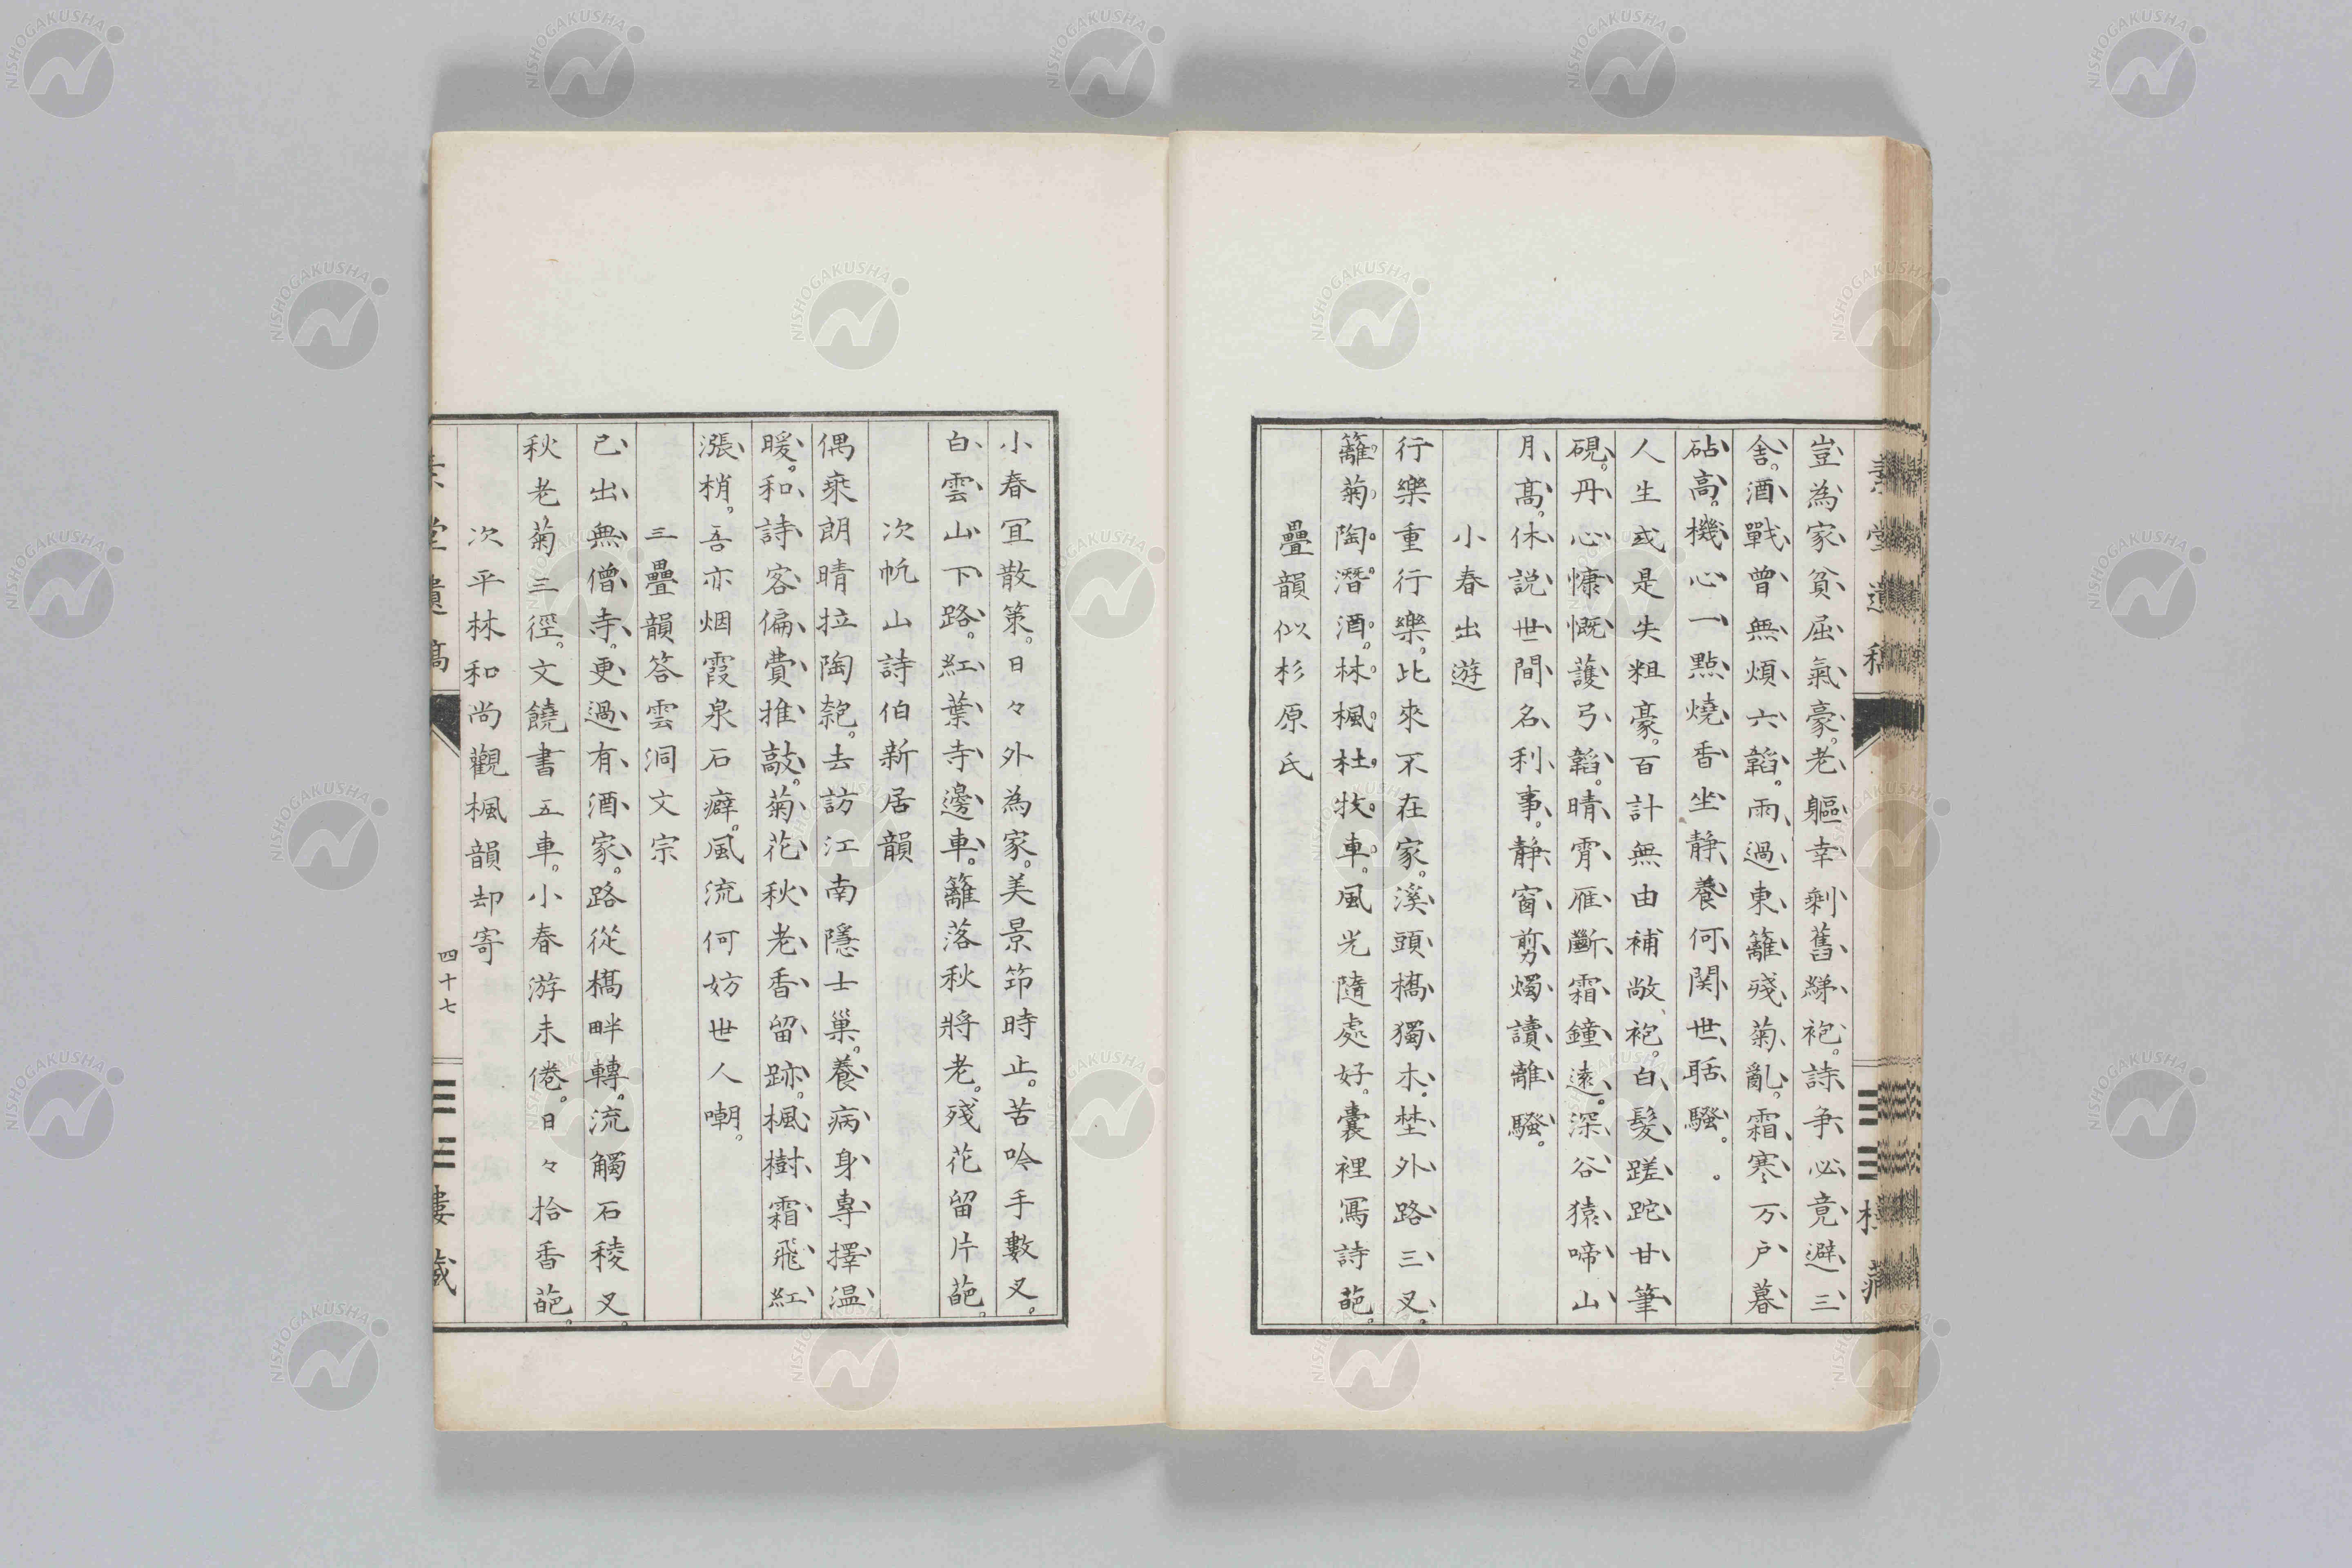 豈為家貧屈氣豪。老軀幸剩舊綈袍。詩爭必竟避三
舍。酒戰曾無煩六韜。雨過東籬殘菊亂。霜寒万户暮
砧高。機心一點燒香坐。靜養何関世聒騷。
人生或是失粗豪。百計無由補敝袍。白髮蹉跎甘筆
硯。丹心慷慨護弓韜。晴霄雁斷霜鐘遠。深谷猿啼山
月高。休説世間名利事。靜窗剪燭讀離騷。
小春出遊
行樂重行樂。此來不在家。溪頭橋獨木。埜外路三叉。
籬菊陶潛酒。林楓杜牧車。風光隨處好。囊裡寫詩葩。
疊韻似杉原氏
小春冝散策。日々外為家。美景節時止。苦吟手數叉。
白雲山下路。紅葉寺邊車。籬落秋將老。殘花留片葩。
次帆山詩伯新居韻
偶乘朗晴拉陶匏。去訪江南隱士巢。養病身專擇温
暖。和詩客偏費推敲。菊花秋老香留跡。楓樹霜飛紅
漲梢。吾亦烟霞泉石癖。風流何妨世人嘲。
三疊韻答雲洞文宗
已出無僧寺。更過有酒家。路從橋畔轉。流觸石稜叉。
秋老菊三徑。文饒書五車。小春游未倦。日々拾香葩。
次平林和尚觀楓韻却寄
堂遺稿
四十七
樓藏
NISHOGAKUSHA